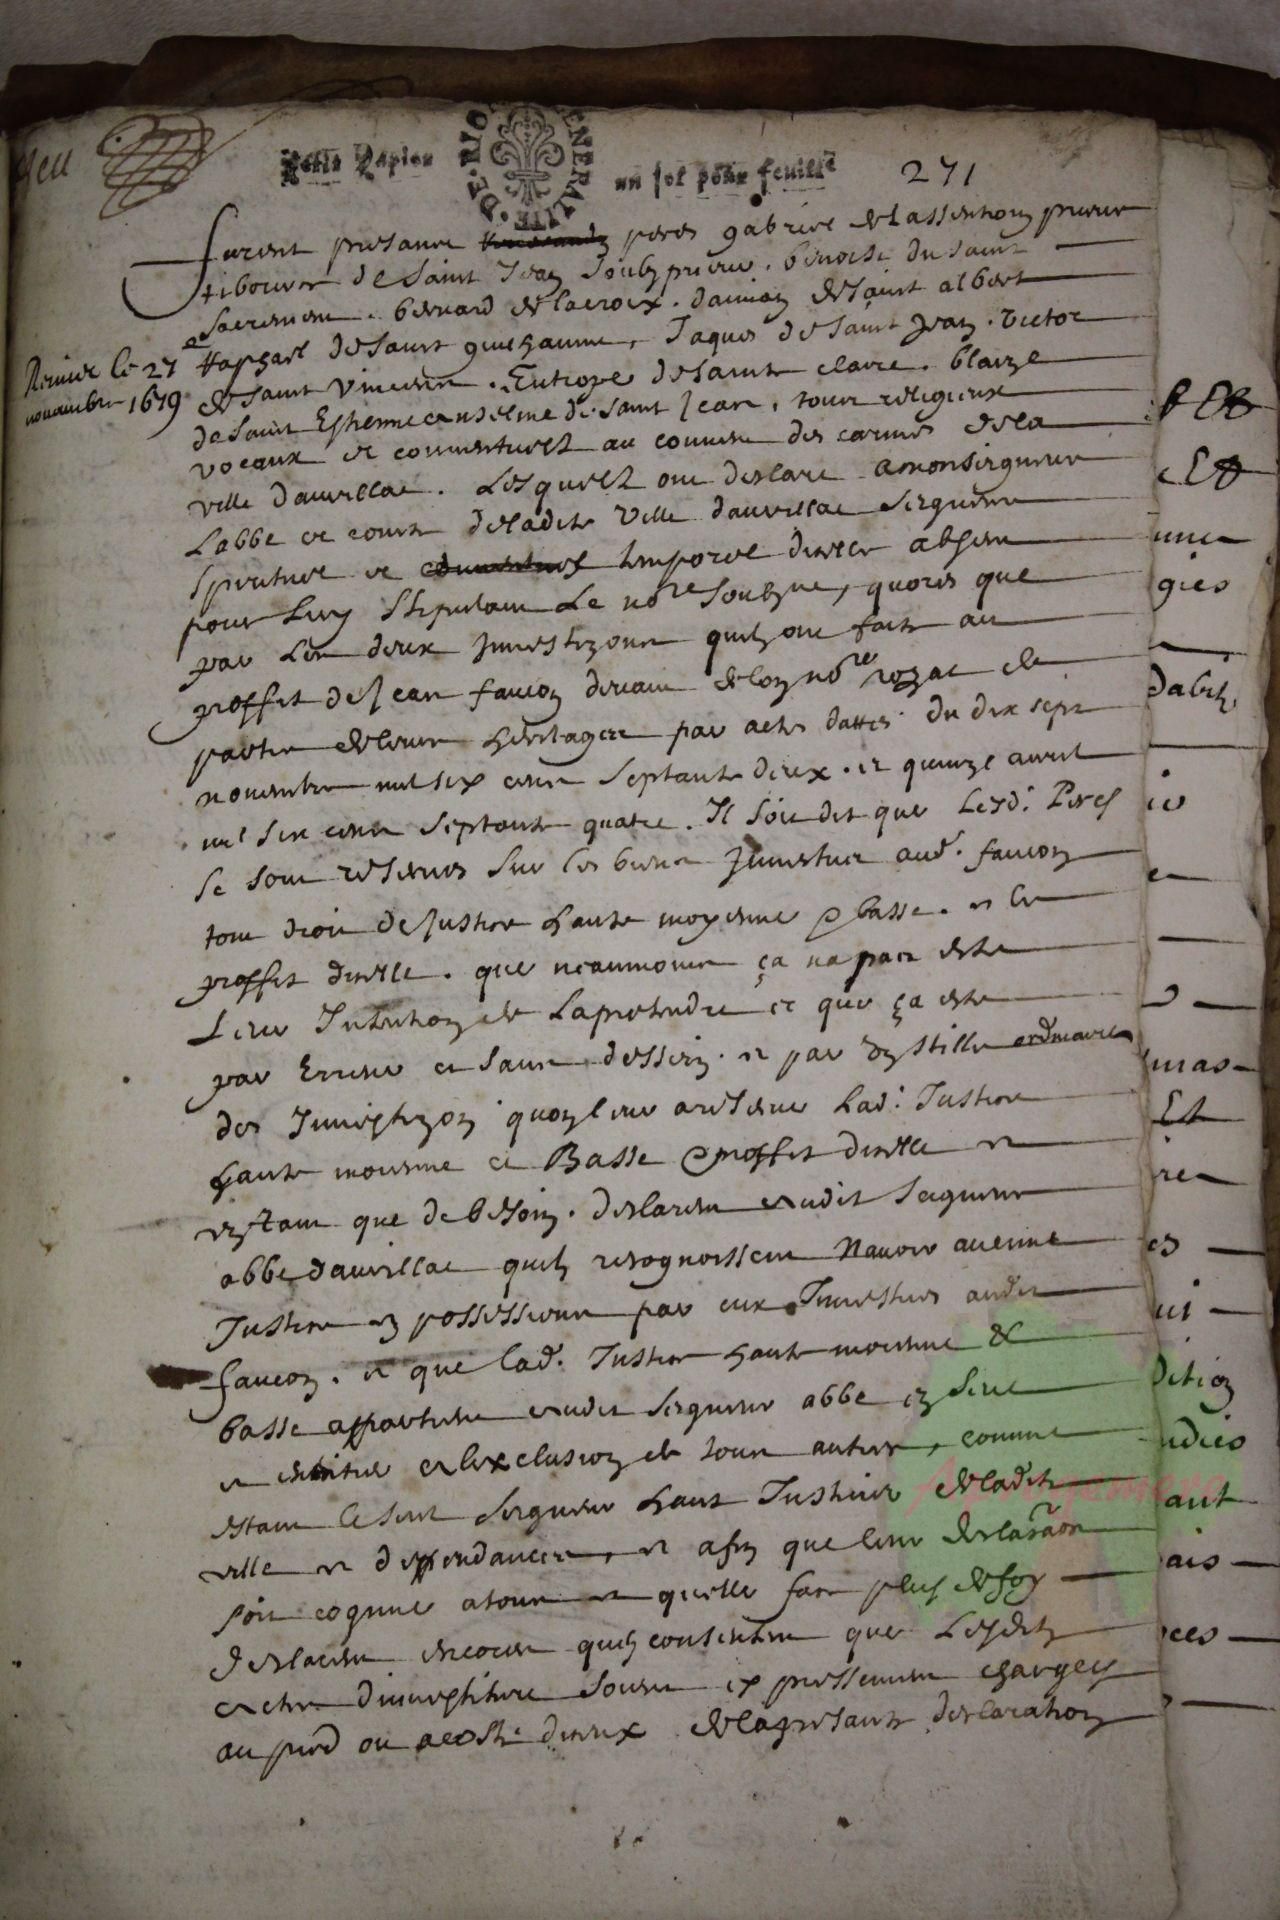 Petit Papier DE RIO ENERALITE un sol pour feuille
271
furent presans peres gabriel de lassention prieur
tibource de Saint Jean soubz prieur. benoist du saint
sacrement. bernard de lacroix. damien de saint albert
Raphael de saint guilhaume, Jaques de saint Jean. victor
de saint vincent. Eutrope de sainte claire. blaize
de saint Estienne anselme de saint Jean, tous religieux
vocaux et conventuelz au couvent des carmes de la
ville daurillac. Lesquelz ont desclare a monseigneur
Labbe et comte de ladite ville daurillac seigneur
spirituel et temporel dicelle absent
pour Luy stipulant Le nore soubzne, quores que
par Les deux Investizons quilz ont faite au
proffit de Jean faucon devant de loy nore rozat de
partie de leurs heritages par actes dattes du dix sept
novembre mil six cens septante deux. et quinze avril
mil six cens septante quatre. Il soit dit que Lesd. Peres
se sont reserves sur les biens Investus aud. faucon
tout droit de Justice haute moyenne et basse. et le
proffit dicelle. que neanmoins ça na pas este
Leur Intention de La pretendre et que ça este
par Erreur et sans dessein. et par un stille ordinaire
des Investizon quon leur a reserve Lad. Justice
haute moienne et Basse et proffit dicelle et
en tant que de besoin. desclarent audit seigneur
abbe daurillac quilz recognoissent Navoir aucune
Justice en possessions par eux Investies audit
faucon. et que lad. Justice haute moienne et
basse appartient audit seigneur abbe en seul
et a lexclusion de tous autres, comme
estant le seul seigneur haut Justicier de ladite
ville et deppendances, et afin que leur desclaraon
soit cogneue a tous et quelle fasse plus de foy
desclarent encores quilz consentent que Lesdits
actes dinvestiture soient expressement charges
au pied ou a coste diceux de la presante desclaration
Reunier le 27
novembre 1679
unes
gies
dabitz
io
mas
Et
es
ui
dition
udies
ant
ais
ces